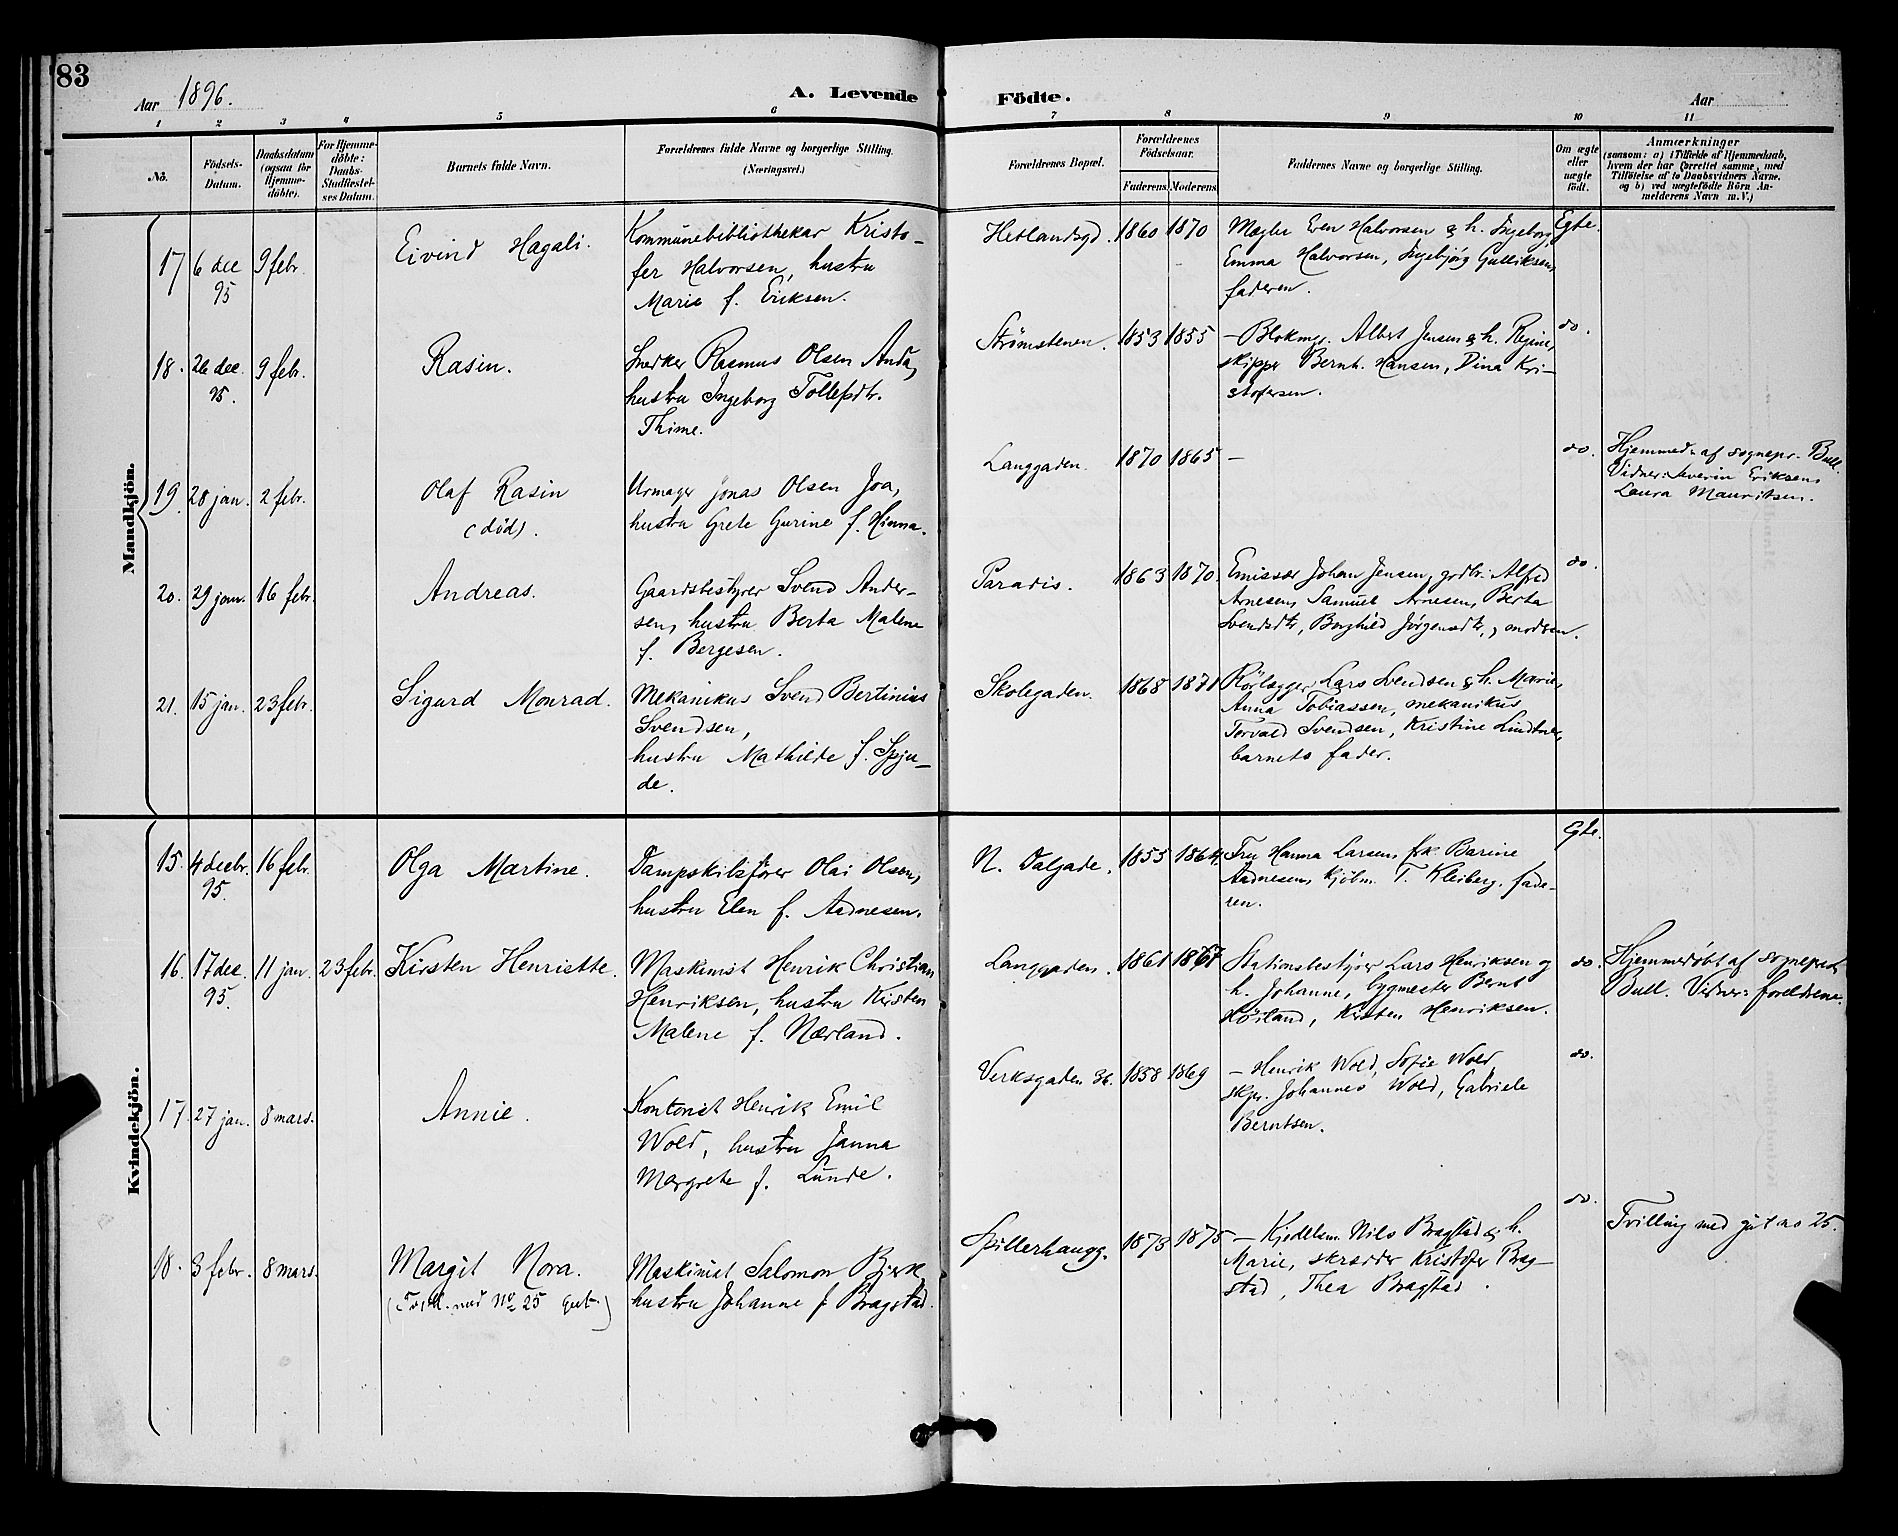 83
Aar 1896.
A. Levende Födte.
Aar
1 2 3 4 5 6 7 8 9 10 11
No.
Födsels-Datum.
Daabsdatum (ogsaa for Hjemme-döbte).
For Hjemme-döbte: Daabs-Stadfæstel-ses Datum.
Barnets fulde Navn.
Forældrenes fulde Navne og borgerlige Stilling. (Næringsvei.)
Forældrenes Bopæl.
Forældrenes Födselsaar.
Faderens. Moderens.
Faddernes Navne og borgerlige Stilling.
Om ægte eller uægte födt.
Anmærkninger
(saasom: a) i Tilfælde af Hjemmedaab, hvem der har forrettet samme, med Tilföielse af to Daabsvidners Navne, og b) ved uægtefödte Börn Anmelderens Navn m.V.)
Mandkjön.
17 6 dec 95 9 febr. Eivind Hagali.
Kommunebibliothekar Kristo-
fer Halvorsen, hustru
Marie f. Eriksen.
Hetlandsgd. 1860 1870
Mægler Even Halvorsen & h. Ingeborg,
Emma Halvorsen, Ingebjörg Gulliksen,
faderen.
Egte.
18. 26 dec. 95. 9 febr. Rasin.
Snedker Rasmus Olsen Anda,
hustru Ingeborg Tollefsdtr.
Thime.
Strømstenen. 1853 1855
— Blokmgr. Albert Jensen & h. Regine,
skipper Bernh. Hansen, Dina Kri-
stofersen.
do.
19. 28 jan. 2 febr. Olaf Rasin
(död).
Urmager Jonas Olsen Joa,
hustru Grete Gurine f. Hinna.
Langgaden. 1870 1865 —
do.
Hjemmed. af sognepr. Bull.
Vidner: Severin Eriksen,
Laura Mauritsen.
20. 29 jan. 16 febr. Andreas.
Gaardsbestyrer Svend Ander-
sen, hustru Berta Malene
f. Bergesen.
Paradis. 1863 1870.
Emissær Johan Jensen, grdbr. Alfred
Arnesen, Samuel Arnesen, Berta
Svendsdtr, Borghild Jörgensdtr., moderen.
do.
21. 15 jan. 23 febr. Sigurd Monrad.
Mekanikus Svend Bertinius
Svendsen,
hustru Mathilde f. Skju-
de.
Skolegaden. 1868 1871
Rörlægger Lars Svendsen & h. Marie,
Anna Tobiassen, mekanikus
Torvald Svendsen, Kristine Lindtner,
barnets fader.
Kvindekjön.
15. 4 decbr. 95. 16 febr. Olga Martine.
Dampskibsfører Olai Olsen,
hustru Elen f. Aadnesen.
N. Dalgade. 1855 1864.
Fru Hanna Larsen, frk. Barine
Aadnesen, kjöbm. T. Kleiberg, fade-
ren.
Gte.
16. 17 dec. 95. 11 jan. 23 febr. Kirsten Henriette.
Maskinist Henrik Christian
Henriksen, hustru Kirsten
Malene f. Nærland.
Langgaden. 1861 1867
Stationsbestyrer Lars Henriksen og
h. Johanne, bygmester Bernt
Hörland, Kirsten Henriksen.
do.
Hjemmedøbt af sogneprest
Bull. Vidner: foreldrene.
17. 27 jan. 8 mars. Annie.
Kontorist Henrik Emil
Wold, hustru Janna
Margrete f. Lunde.
Verksgaden 36. 1858 1869
— Henrik Wold, Sofie Wold,
skpr. Johannes Wold, Gabriele
Berntsen.
do.
18. 3 febr. 8 mars. Margit Nora.
(Tvill. med No 25 gut.)
Maskinist Salomon Bjerk,
hustru Johanne f Bragstad.
Spillerhaugg. 1873 1875
— Kjedelsm. Nils Bragstad & h.
Marie, skrædder Kristofer Brag-
stad, Thea Bragstad.
do.
Tvilling med gut no 25.